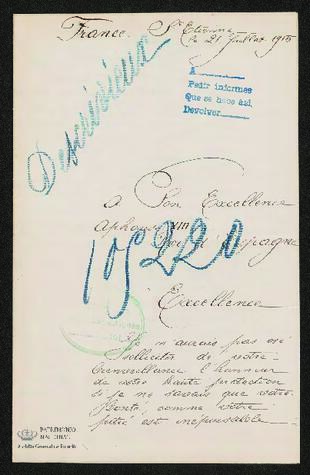 France. St Etienne
le 21 Juillet 1915
A
Pedir informes
Que se hace así
Devolver
105220
A Son Excellence
Alphonse XIII
Roi d'Espagne
Excellence
Je n'aurais pas osé
solliciter de votre
bienveillance l'honneur
de votre haute protection
si je ne savais que votre
bonté, comme votre
pitié est inépuisable.
PATRIMONIO
NACIONAL